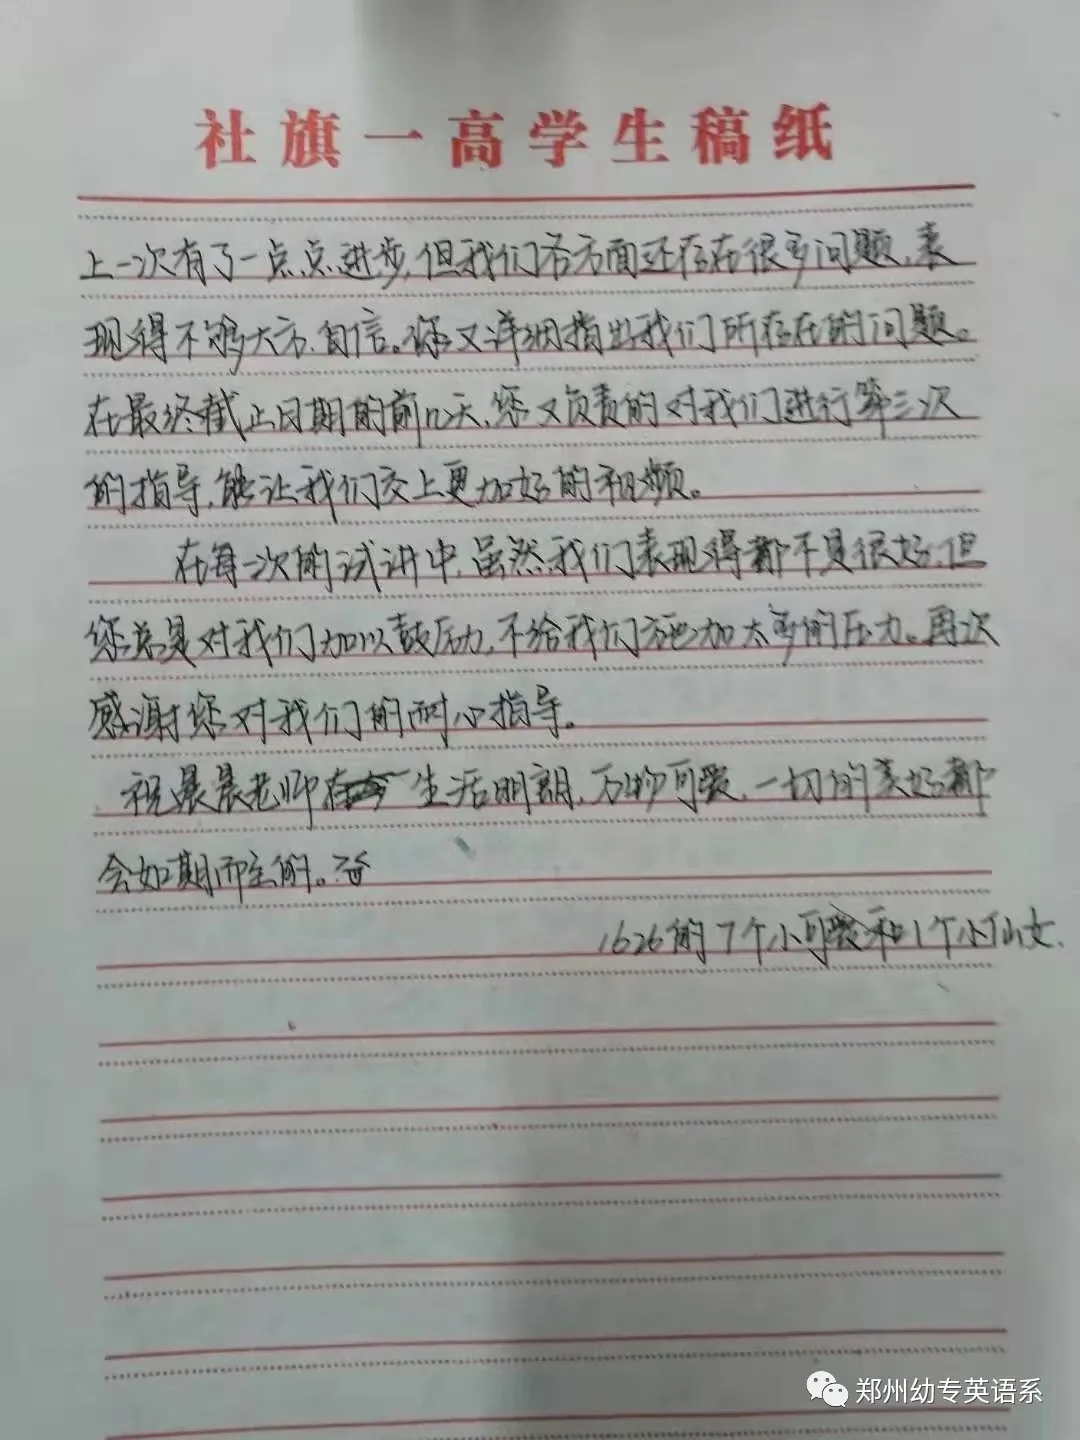 社旗一高学生稿纸
上一次有了一点点进步,但我们各方面还存在很多问题,表
现得不够大方、自信。您又详细指出我们所存在的问题。
在最终截止日期的前几天,您又负责的对我们进行第三次
的指导,能让我们交上更加好的视频。
在每一次的试讲中,虽然我们表现得都不是很好,但
您总是对我们加以鼓励,不给我们施加太多的压力。再次
感谢您对我们的耐心指导。
祝晨晨老师 生活明朗,万物可爱,一切的美好都
会如期而至的。
1626的7个小可爱和1个小仙女.
郑州幼专英语系